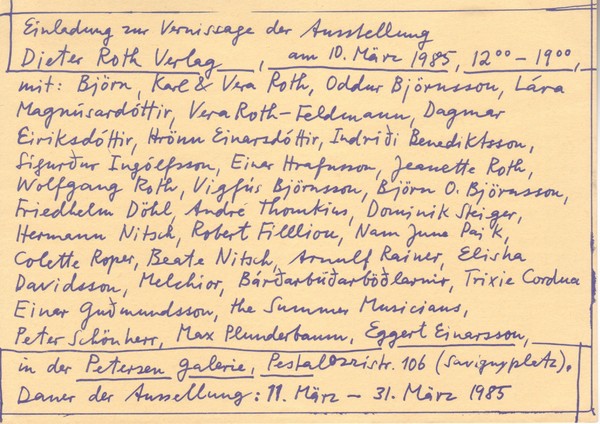 Einladung zur Vernissage der Ausstellung
Dieter Roth Verlag, am 10. März 1985, 12⁰⁰ – 19⁰⁰,
mit: Björn, Karl & Vera Roth, Oddur Björnsson, Lára
Magnúsardóttir, Vera Roth-Feldmann, Dagmar
Eiriksdóttir, Hrönn Einarsdóttir, Indriði Benediktsson,
Sigurður Ingólfsson, Einar Hrafnsson, Jeanette Roth,
Wolfgang Roth, Vigfús Björnsson, Björn O. Björnsson,
Friedhelm Döhl, André Thomkins, Dominik Steiger,
Hermann Nitsch, Robert Filliou, Nam June Paik,
Colette Roper, Beate Nitsch, Arnulf Rainer, Elisha
Davidsson, Melchior, Bárðarbúðarböðlarnir, Trixie Cordua
Einar Guðmundsson, the Summer Musicians,
Peter Schönherr, Max Plunderbaum, Eggert Einarsson,
in der Petersen galerie, Pestalozzistr. 106 (Savignyplatz).
Dauer der Aussellung: 11. März – 31. März 1985